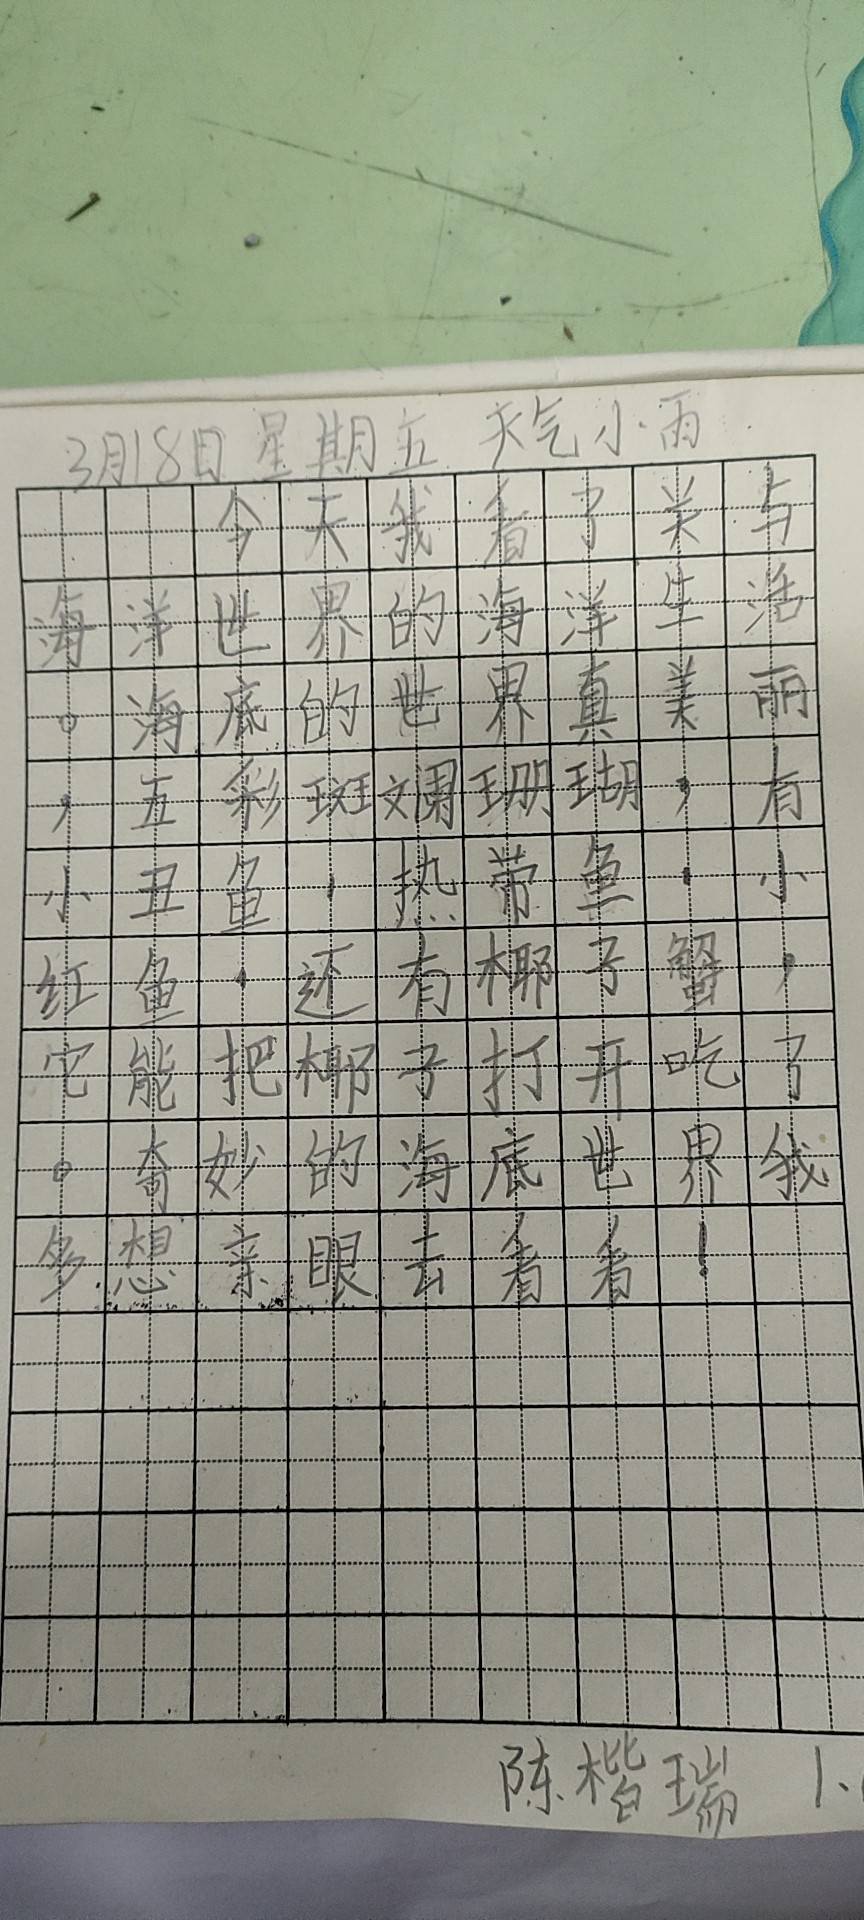 3月18日 星期五 天气小雨
今天我看了关与
海洋世界的海洋生活
。海底的世界真美丽
，五彩斑斓珊瑚，有
小丑鱼，热带鱼，小
红鱼，还有椰子蟹，
它能把椰子打开吃了
。奇妙的海底世界我
多想亲眼去看看！
陈楷瑞